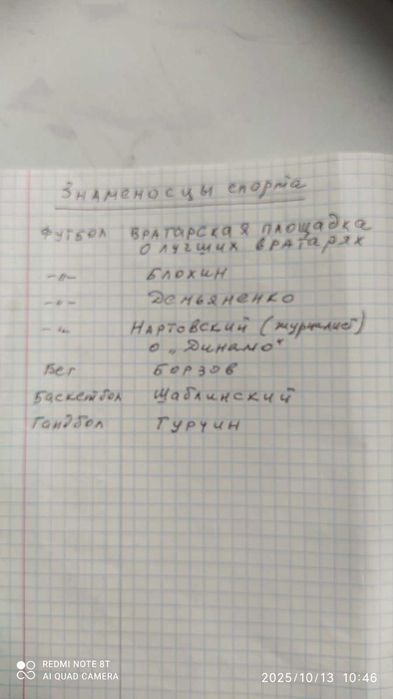 Знаменосцы спорта
Футбол Вратарская площадка
о лучших вратарях
-"- Блохин
-"- Демьяненко
-"- Нартовский (журналист)
о "Динамо"
Бег Борзов
Баскетбол Шаблинский
Гандбол Турчин
REDMI NOTE 8T
AI QUAD CAMERA
2025/10/13 10:46